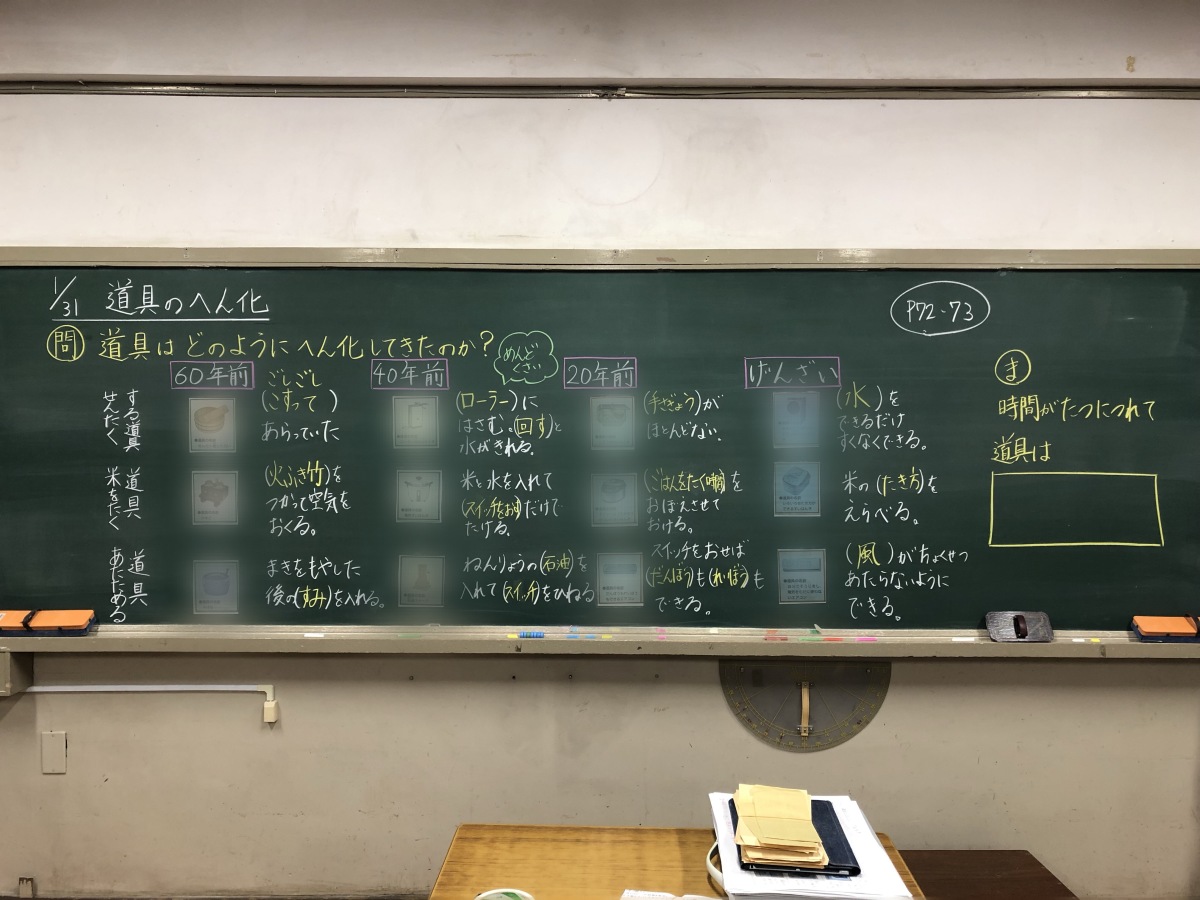 1/31 道具のへん化
P72-73
問 道具はどのようにへん化してきたのか?
めんど
くさい
60年前
40年前
20年前
げんざい
せんたく
する道具
ごしごし
(こすって)
あらっていた
(ローラー)に
はさむ。(回す)と
水がきれる。
(手さぎょう)が
ほとんどない。
(水)を
できるだけ
すくなくできる。
米をたく
道具
(火ふき竹)を
つかって空気を
おくる。
米と水を入れて
(スイッチをおす)だけで
たける。
(ごはんをたく時間)を
おぼえさせて
おける。
米の(たき方)を
えらべる。
あたためる
道具
まきをもやした
後の(すみ)を入れる。
ねんりょうの(石油)を
入れて(スイッチ)をひねる
スイッチをおせば
(だんぼう)も(れいぼう)も
できる。
(風)がちょくせつ
あたらないように
できる。
ま
時間がたつにつれて
道具は